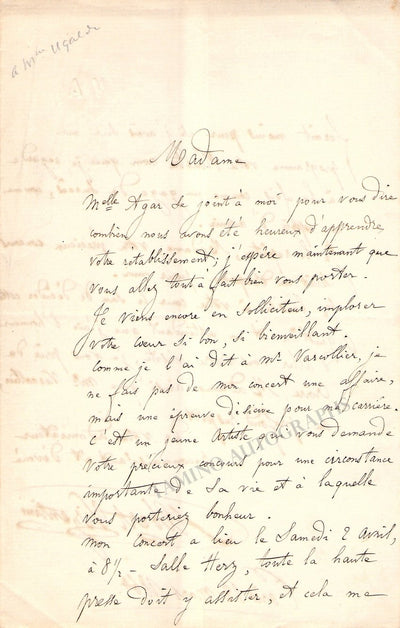 à Mme Ugalde
Madame
Melle Agar se joint à moi pour vous dire
combien nous avons été heureux d'apprendre
votre rétablissement; j'espère maintenant que
vous allez tout à fait bien vous porter.
Je viens encore en solliciteur, implorer
votre coeur si bon, si bienveillant.
comme je l'ai dit à Mr Varcollier, je
ne fais pas de mon concert une affaire,
mais une épreuve décisive pour ma carrière.
C'est un jeune Artiste qui vous demande
votre précieux concours pour une circonstance
importante de sa vie et à laquelle
vous porteriez bonheur.
Mon concert a lieu le Samedi 2 avril,
à 8½ - Salle Herz, toute la haute
presse doit y assister, et cela me
TAMINO AUTOGRAPHS